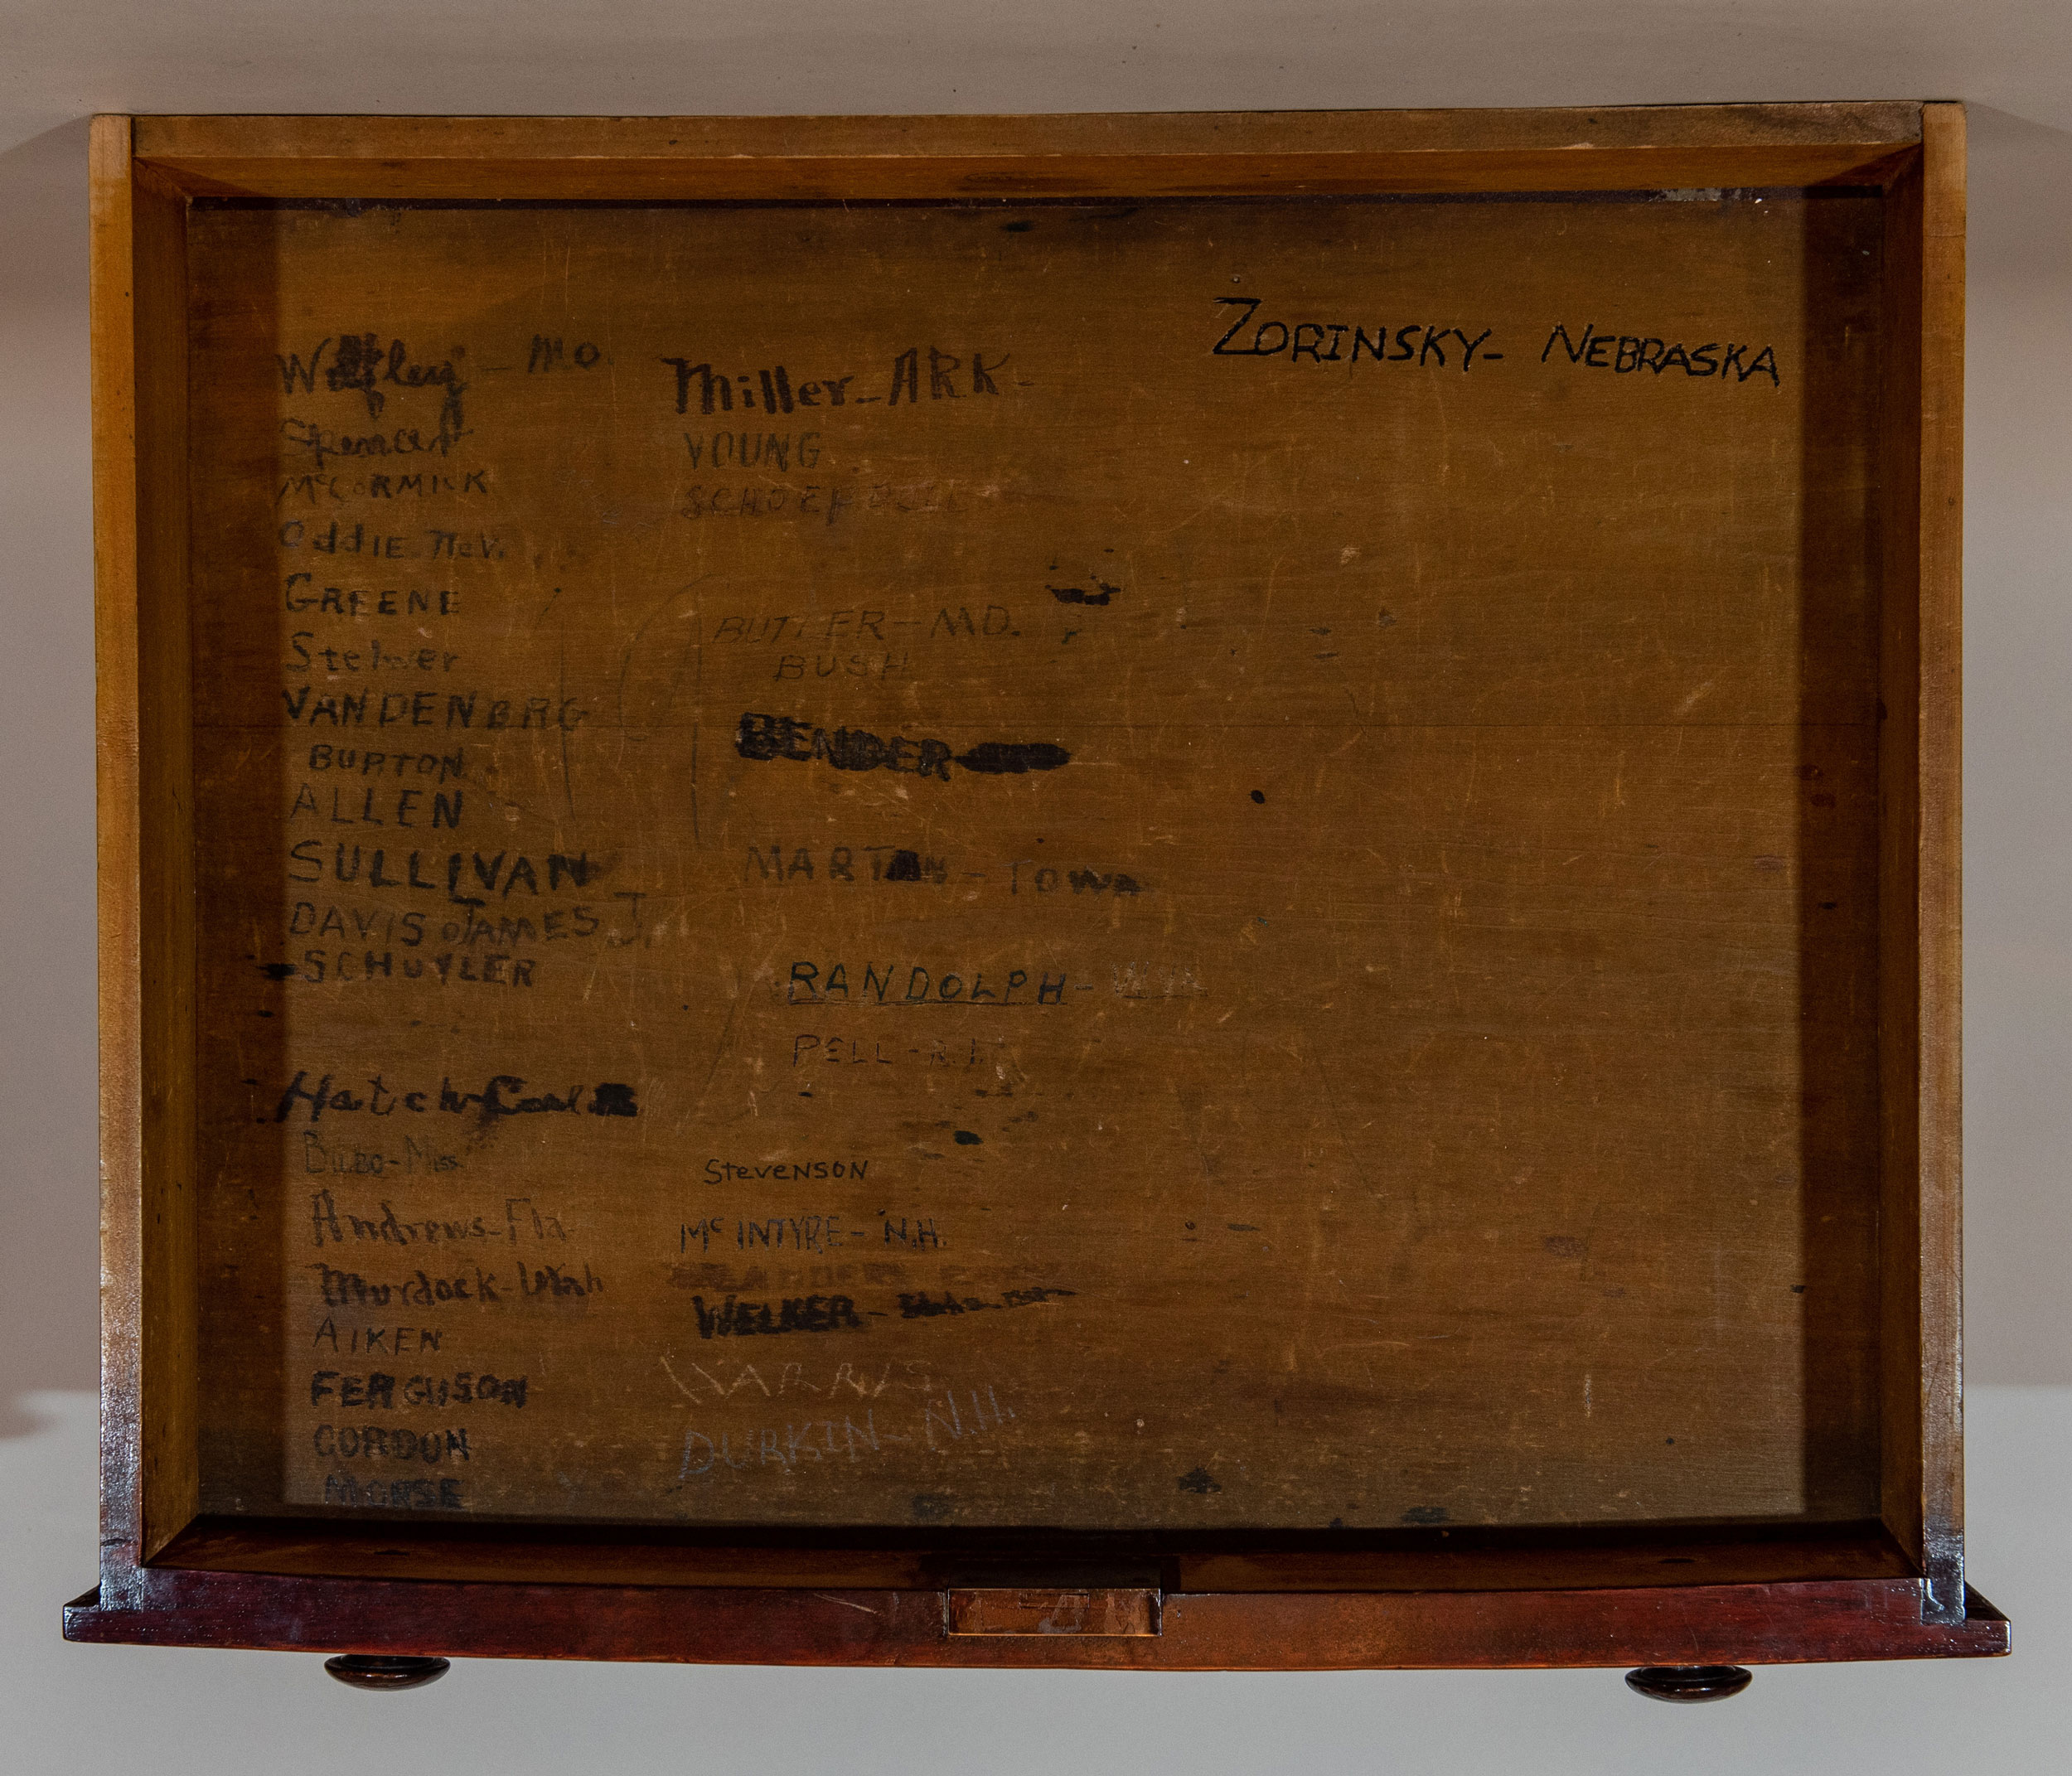 Wolfley - Mo
Spencer
McCORMICK
OddIE. Nev.
GREENE
Steiwer
VANDENBRG
BURTON
ALLEN
SULLIVAN
DAVIS JAMES J.
SCHUYLER
Hatch
Bilbo-Miss
Andrews-Fla-
Murdock-Utah
AIKEN
FERGUSON
GORDON
MORSE
Miller-ARK-
YOUNG
SCHOEPPEL
BUTLER-MD.
BUSH
BENDER-
MARTIN - Iowa
RANDOLPH-
PELL-R.I.
StevENSON
Mc INTYRE- N.H.
WELKER-
HARRIS
DURKIN- N.H.
ZORINSKY- NEBRASKA